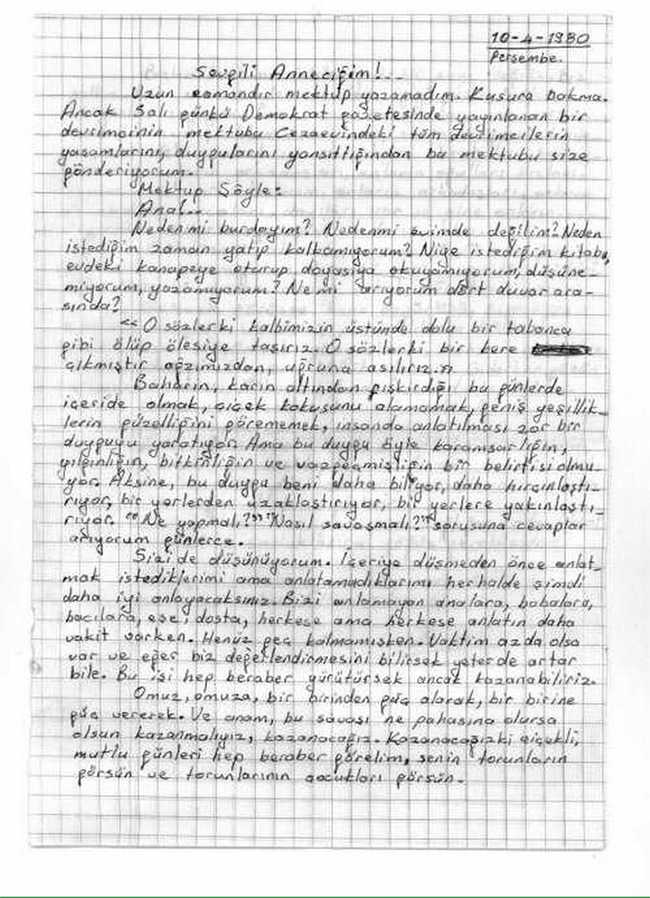 10-4-1980
Perşembe.
Sevgili Anneciğim!..
Uzun zamandır mektup yazamadım. Kusura bakma.
Ancak Salı günkü Demokrat gazetesinde yayınlanan bir
devrimcinin mektubu Cezaevindeki tüm devrimcilerin
yaşamlarını, duygularını yansıttığından bu mektubu size
gönderiyorum.
Mektup Şöyle:
Ana!..
Neden mi burdayım? Neden mi evimde değilim? Neden
istediğim zaman yatıp kalkamıyorum? Niye istediğim kitabı,
evdeki kanapeye oturup doyasıya okuyamıyorum, düşüne-
miyorum, yazamıyorum? Ne mi arıyorum dört duvar ara-
sında?
"O sözler ki kalbimizin üstünde dolu bir tabanca
gibi ölüp ölesiye taşırız. O sözler ki bir kere
çıkmıştır ağzımızdan, uğruna asılırız."
Baharın, karın altından fışkırdığı bu günlerde
içeride olmak, çiçek kokusunu alamamak, geniş yeşillik-
lerin güzelliğini görememek, insanda anlatılması zor bir
duyguyu yaratıyor. Ama bu duygu öyle karamsarlığın,
yılgınlığın, bitkinliğin ve vazgeçmişliğin bir belirtisi olmu-
yor. Aksine, bu duygu beni daha biliyor, daha hırçınlaştı-
rıyor, bir yerlerden uzaklaştırıyor, bir yerlere yakınlaştı-
rıyor. "Ne yapmalı?" "Nasıl savaşmalı?" sorusuna cevaplar
arıyorum günlerce.
Sizi de düşünüyorum. İçeriye düşmeden önce anlat-
mak istediklerimi ama anlatamadıklarımı herhalde şimdi
daha iyi anlayacaksınız. Bizi anlamayan analara, babalara,
bacılara, eşe, dosta, herkese ama herkese anlatın daha
vakit varken. Henüz geç kalmamışken. Vaktim az da olsa
var ve eğer biz değerlendirmesini bilirsek yeter de artar
bile. Bu işi hep beraber yürütürsek ancak kazanabiliriz.
Omuz, omuza, bir birinden güç alarak, bir birine
güç vererek. Ve anam, bu savaşı ne pahasına olursa
olsun kazanmalıyız, kazanacağız. Kazanacağız ki çiçekli,
mutlu günleri hep beraber görelim, senin torunların
görsün ve torunlarının çocukları görsün.